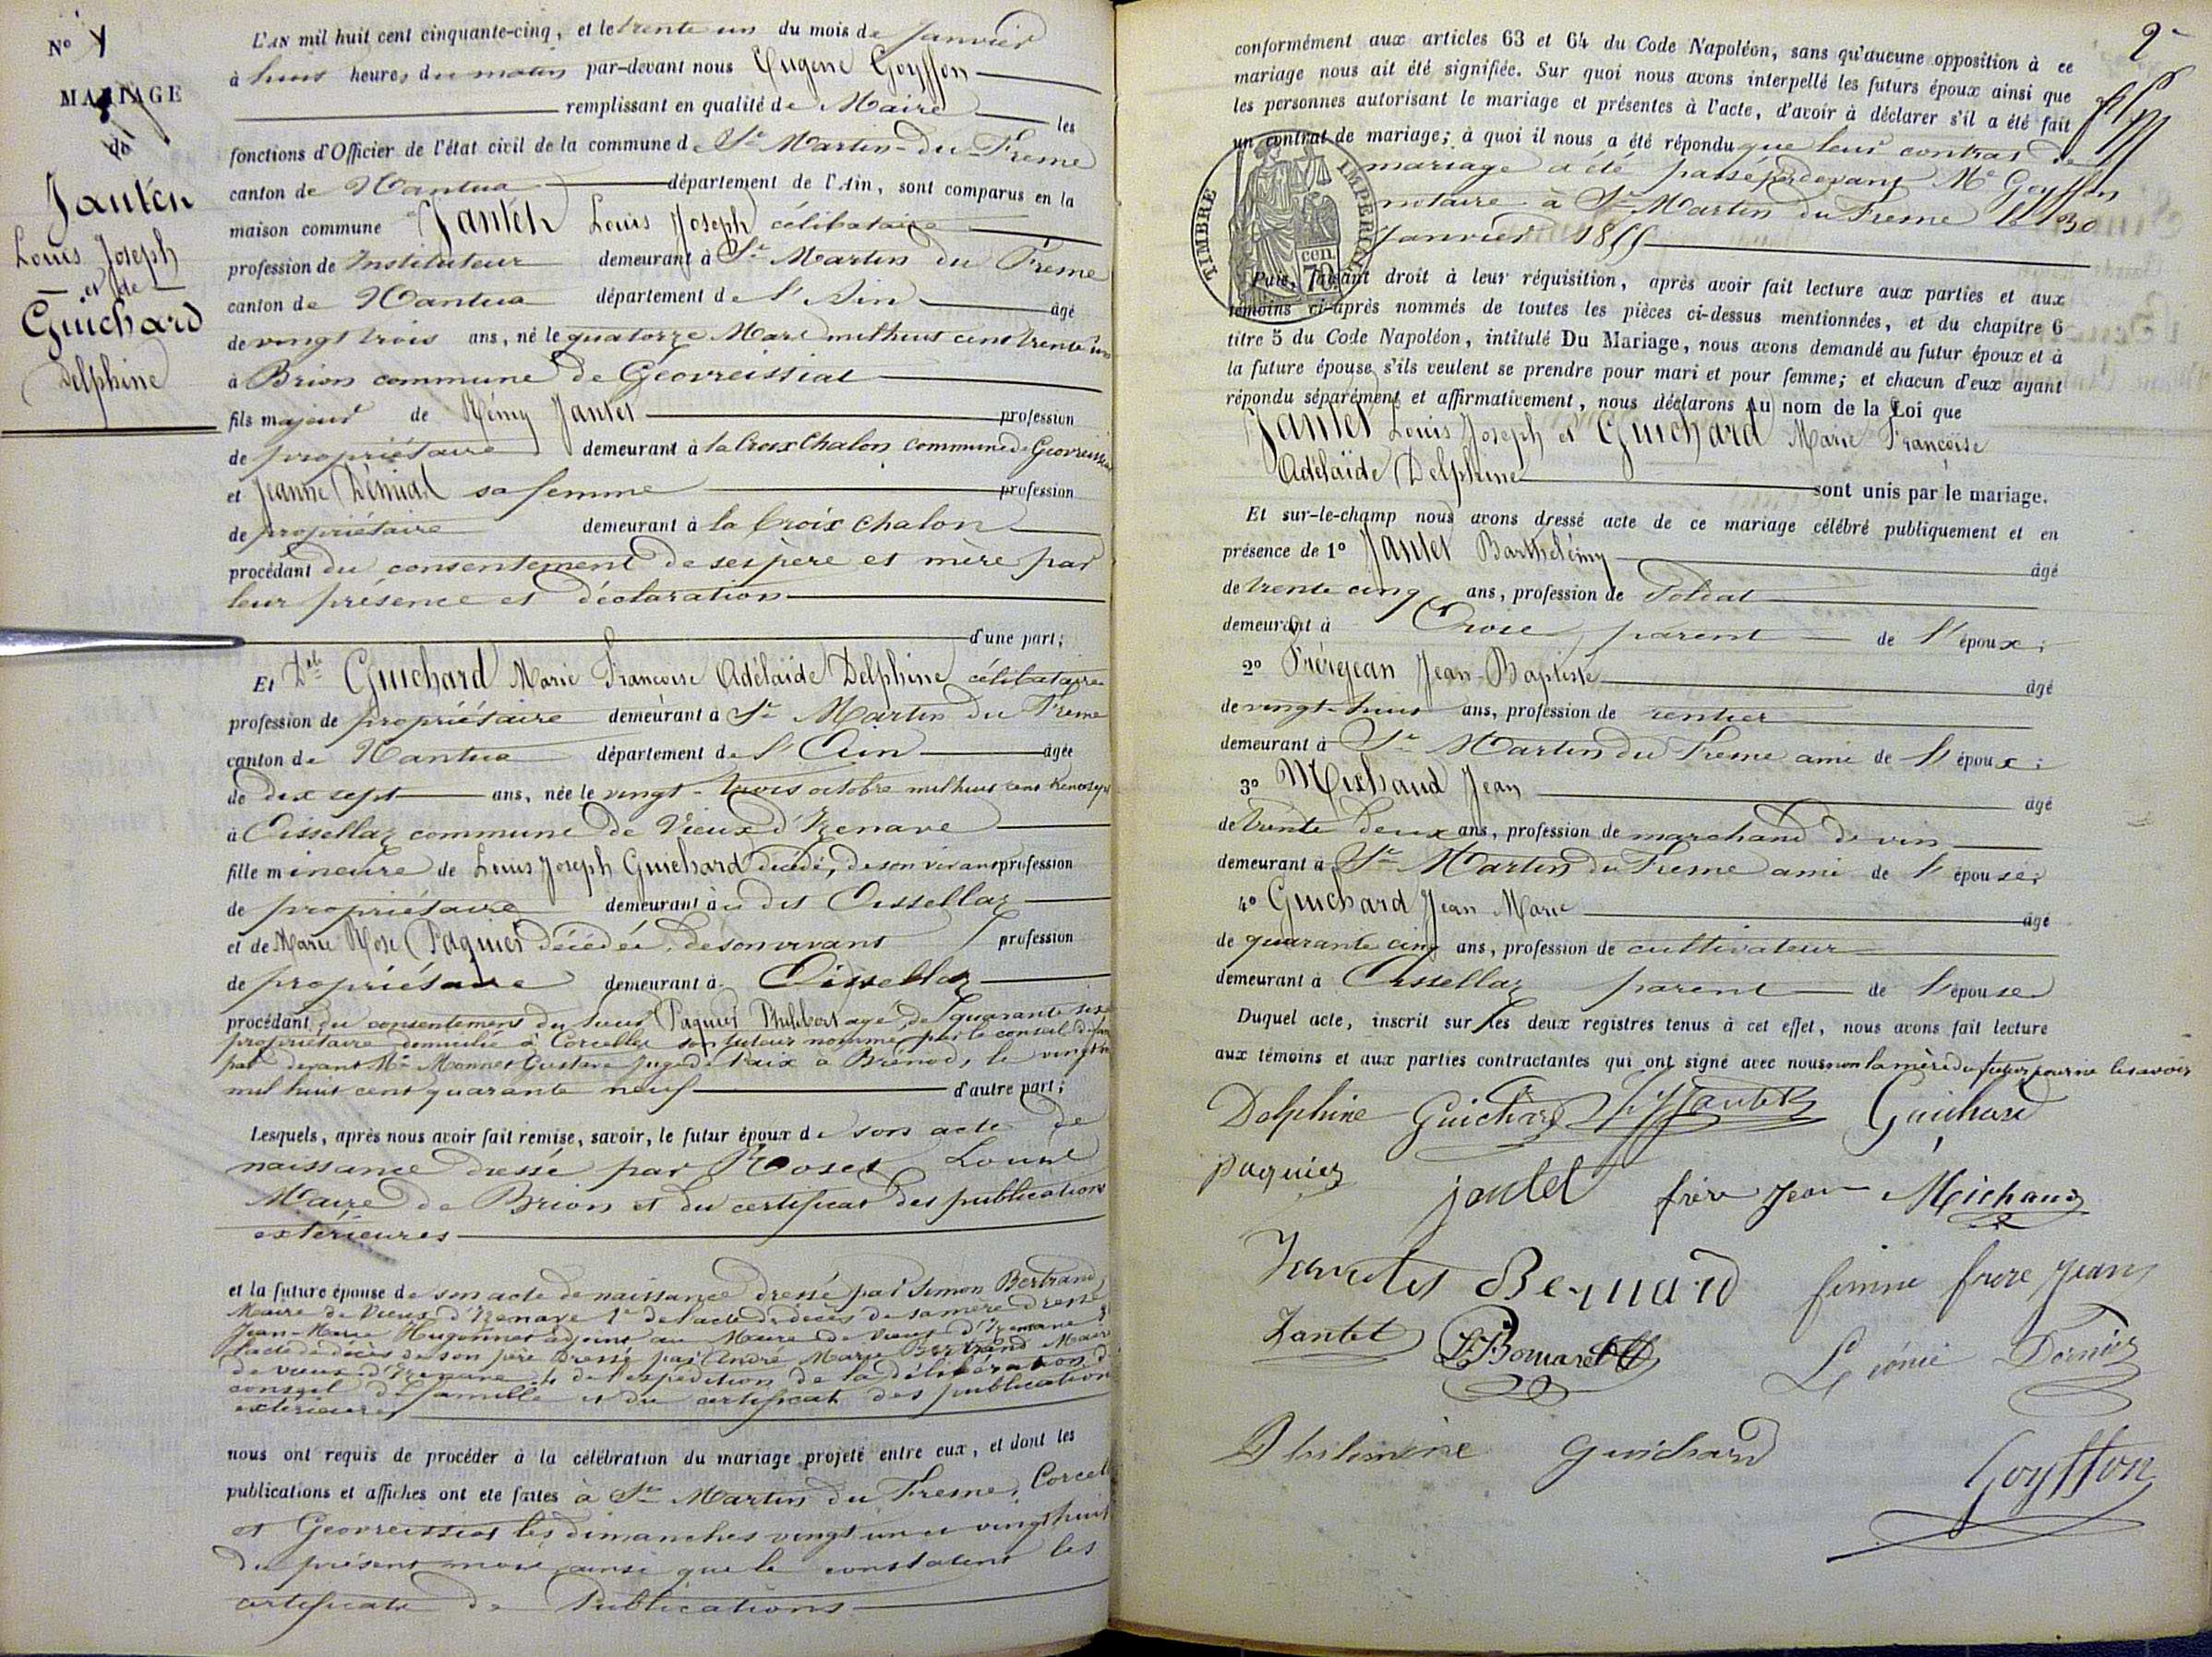 N° 1
MARIAGE
de
Jantet
Louis Joseph
et de
Guichard
Delphine
L'AN mil huit cent cinquante-cinq, et le trente un du mois de Janvier
à huit heures du matin par-devant nous Eugene Goyffon
remplissant en qualité de Maire les
fonctions d'Officier de l'état civil de la commune de St Martin-du-Fresne
canton de Nantua département de l'Ain, sont comparus en la
maison commune Jantet Louis Joseph célibataire
profession de Instituteur demeurant à St Martin du Fresne
canton de Nantua département de l'Ain âgé
de vingt trois ans, né le quatorze Mars mil huit cent trente un
à Brion commune de Géovreissiat
fils majeur de Rémy Jantet profession
de propriétaire demeurant à la Croix Chalon commune de Géovreissiat
et Jeanne sa femme profession
de propriétaire demeurant à la Croix Chalon
procédant du consentement de ses père et mère par
leur présence et déclaration
d'une part;
Et Dlle Guichard Marie Françoise Adélaïde Delphine célibataire
profession de propriétaire demeurant à St Martin du Fresne
canton de Nantua département de l'Ain âgée
de dix sept ans, née le vingt-trois octobre mil huit cent trente sept
à Oissellaz commune de Vieux d'Izenave
fille mineure de Louis Joseph Guichard décédé, de son vivant profession
de propriétaire demeurant à u dit Oissellaz
et de Marie Rose Paquier décédée, de son vivant profession
de propriétaire demeurant à Oissellaz
procédant du consentement du sieur Paquier Philibert agé de quarante six
propriétaire domicilié à Corcelles son tuteur nommé par le conseil de
par devant Me Monnet Gustave juge de Paix à Brénod, le vingt
mil huit cent quarante neuf d'autre part;
Lesquels, après nous avoir fait remise, savoir, le futur époux de son acte de
naissance dressé par Louis
Maire de Brion et du certificat des publications
extérieures
et la future épouse de son acte de naissance dressé par Simon Bertrand
Maire de Vieux d'Izenave 2° de l'acte de décès de sa mère dressé
Jean-Marie Hugonnet adjoint au Maire de Vieux d'Izenave
l'acte de décès de son père dressé par André Marie Bertrand Maire
de vieux d'Izenave 4° de l'expédition de la délibération du
conseil de famille et du certificat des publications
extérieures
nous ont requis de procéder à la célébration du mariage projeté entre eux, et dont les
publications et affiches ont été faites à St Martin du Fresne, Corcelles
et Géovreissiat les dimanches vingt un et vingt huit
du présent mois ainsi que le constatent les
certificats de Publications
2e
conformément aux articles 63 et 64 du Code Napoléon, sans qu'aucune opposition à ce
mariage nous ait été signifiée. Sur quoi nous avons interpellé les futurs époux ainsi que
les personnes autorisant le mariage et présentes à l'acte, d'avoir à déclarer s'il a été fait
un contrat de mariage; à quoi il nous a été répondu que leur contrat de
mariage a été passé pardevant Me Goyffon
notaire à St Martin du Fresne le 30
Janvier 1855
TIMBRE IMPERIAL
70 cen.
Puis, faisant droit à leur réquisition, après avoir fait lecture aux parties et aux
témoins ci-après nommés de toutes les pièces ci-dessus mentionnées, et du chapitre 6
titre 5 du Code Napoléon, intitulé Du Mariage, nous avons demandé au futur époux et à
la future épouse s'ils veulent se prendre pour mari et pour femme; et chacun d'eux ayant
répondu séparément et affirmativement, nous déclarons au nom de la Loi que
Jantet Louis Joseph et Guichard Marie Françoise
Adélaïde Delphine sont unis par le mariage.
Et sur-le-champ nous avons dressé acte de ce mariage célébré publiquement et en
présence de 1° Jantet Barthélémy âgé
de trente cinq ans, profession de Soldat
demeurant à parent de l'époux;
2° Frérejean Jean-Baptiste âgé
de vingt-huit ans, profession de rentier
demeurant à St Martin du Fresne ami de l'époux;
3° Michaud Jean âgé
de trente deux ans, profession de marchand de vin
demeurant à St Martin du Fresne ami de l'épouse;
4° Guichard Jean Marie âgé
de quarante cinq ans, profession de cultivateur
demeurant à Oissellaz parent de l'épouse
Duquel acte, inscrit sur les deux registres tenus à cet effet, nous avons fait lecture
aux témoins et aux parties contractantes qui ont signé avec nous non la mère du futur pour ne le savoir
Delphine Guichard Jantet Guichard
paquiez jantet frère Jean Michaud
Bernard femme frere Jean
Jantet Léonie Dornier
Philomène Guichard
Goyffon